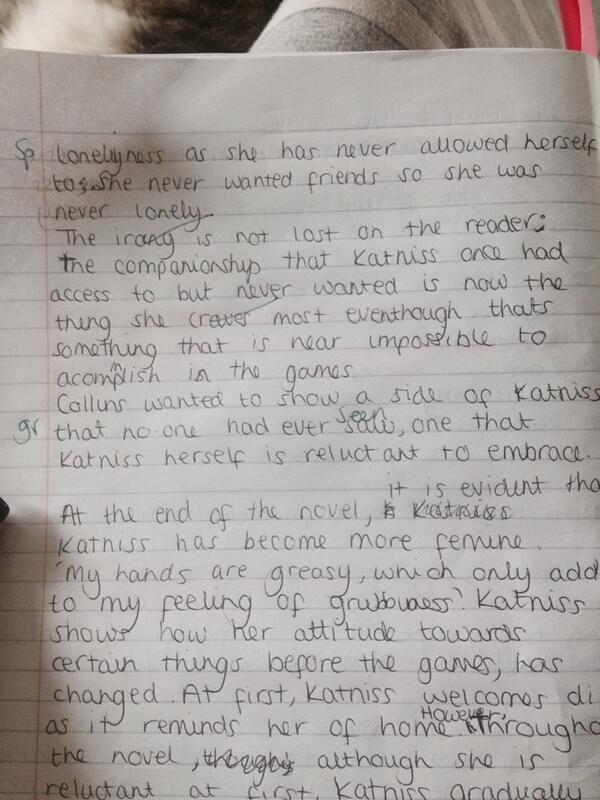 Sp Lonelyness as she has never allowed herself
to. She never wanted friends so she was
never lonely.
The irony is not lost on the reader;
the companionship that Katniss once had
access to but never wanted is now the
thing she craves most eventhough thats
something that is near impossible to
acomplish in the games.
Collins wanted to show a side of Katniss
gr that no-one had ever saw seen, one that
Katniss herself is reluctant to embrace.
it is evident tha
At the end of the novel, Katniss
Katniss has become more femine.
'My hands are greasy, which only add
to my feeling of grubbiness'. Katniss
shows how her attitude towards
certain things before the games, has
changed. At first, Katniss welcomes di
as it reminds her of home. However, throughо
the novel, although she is
reluctant at first, Katniss gradually